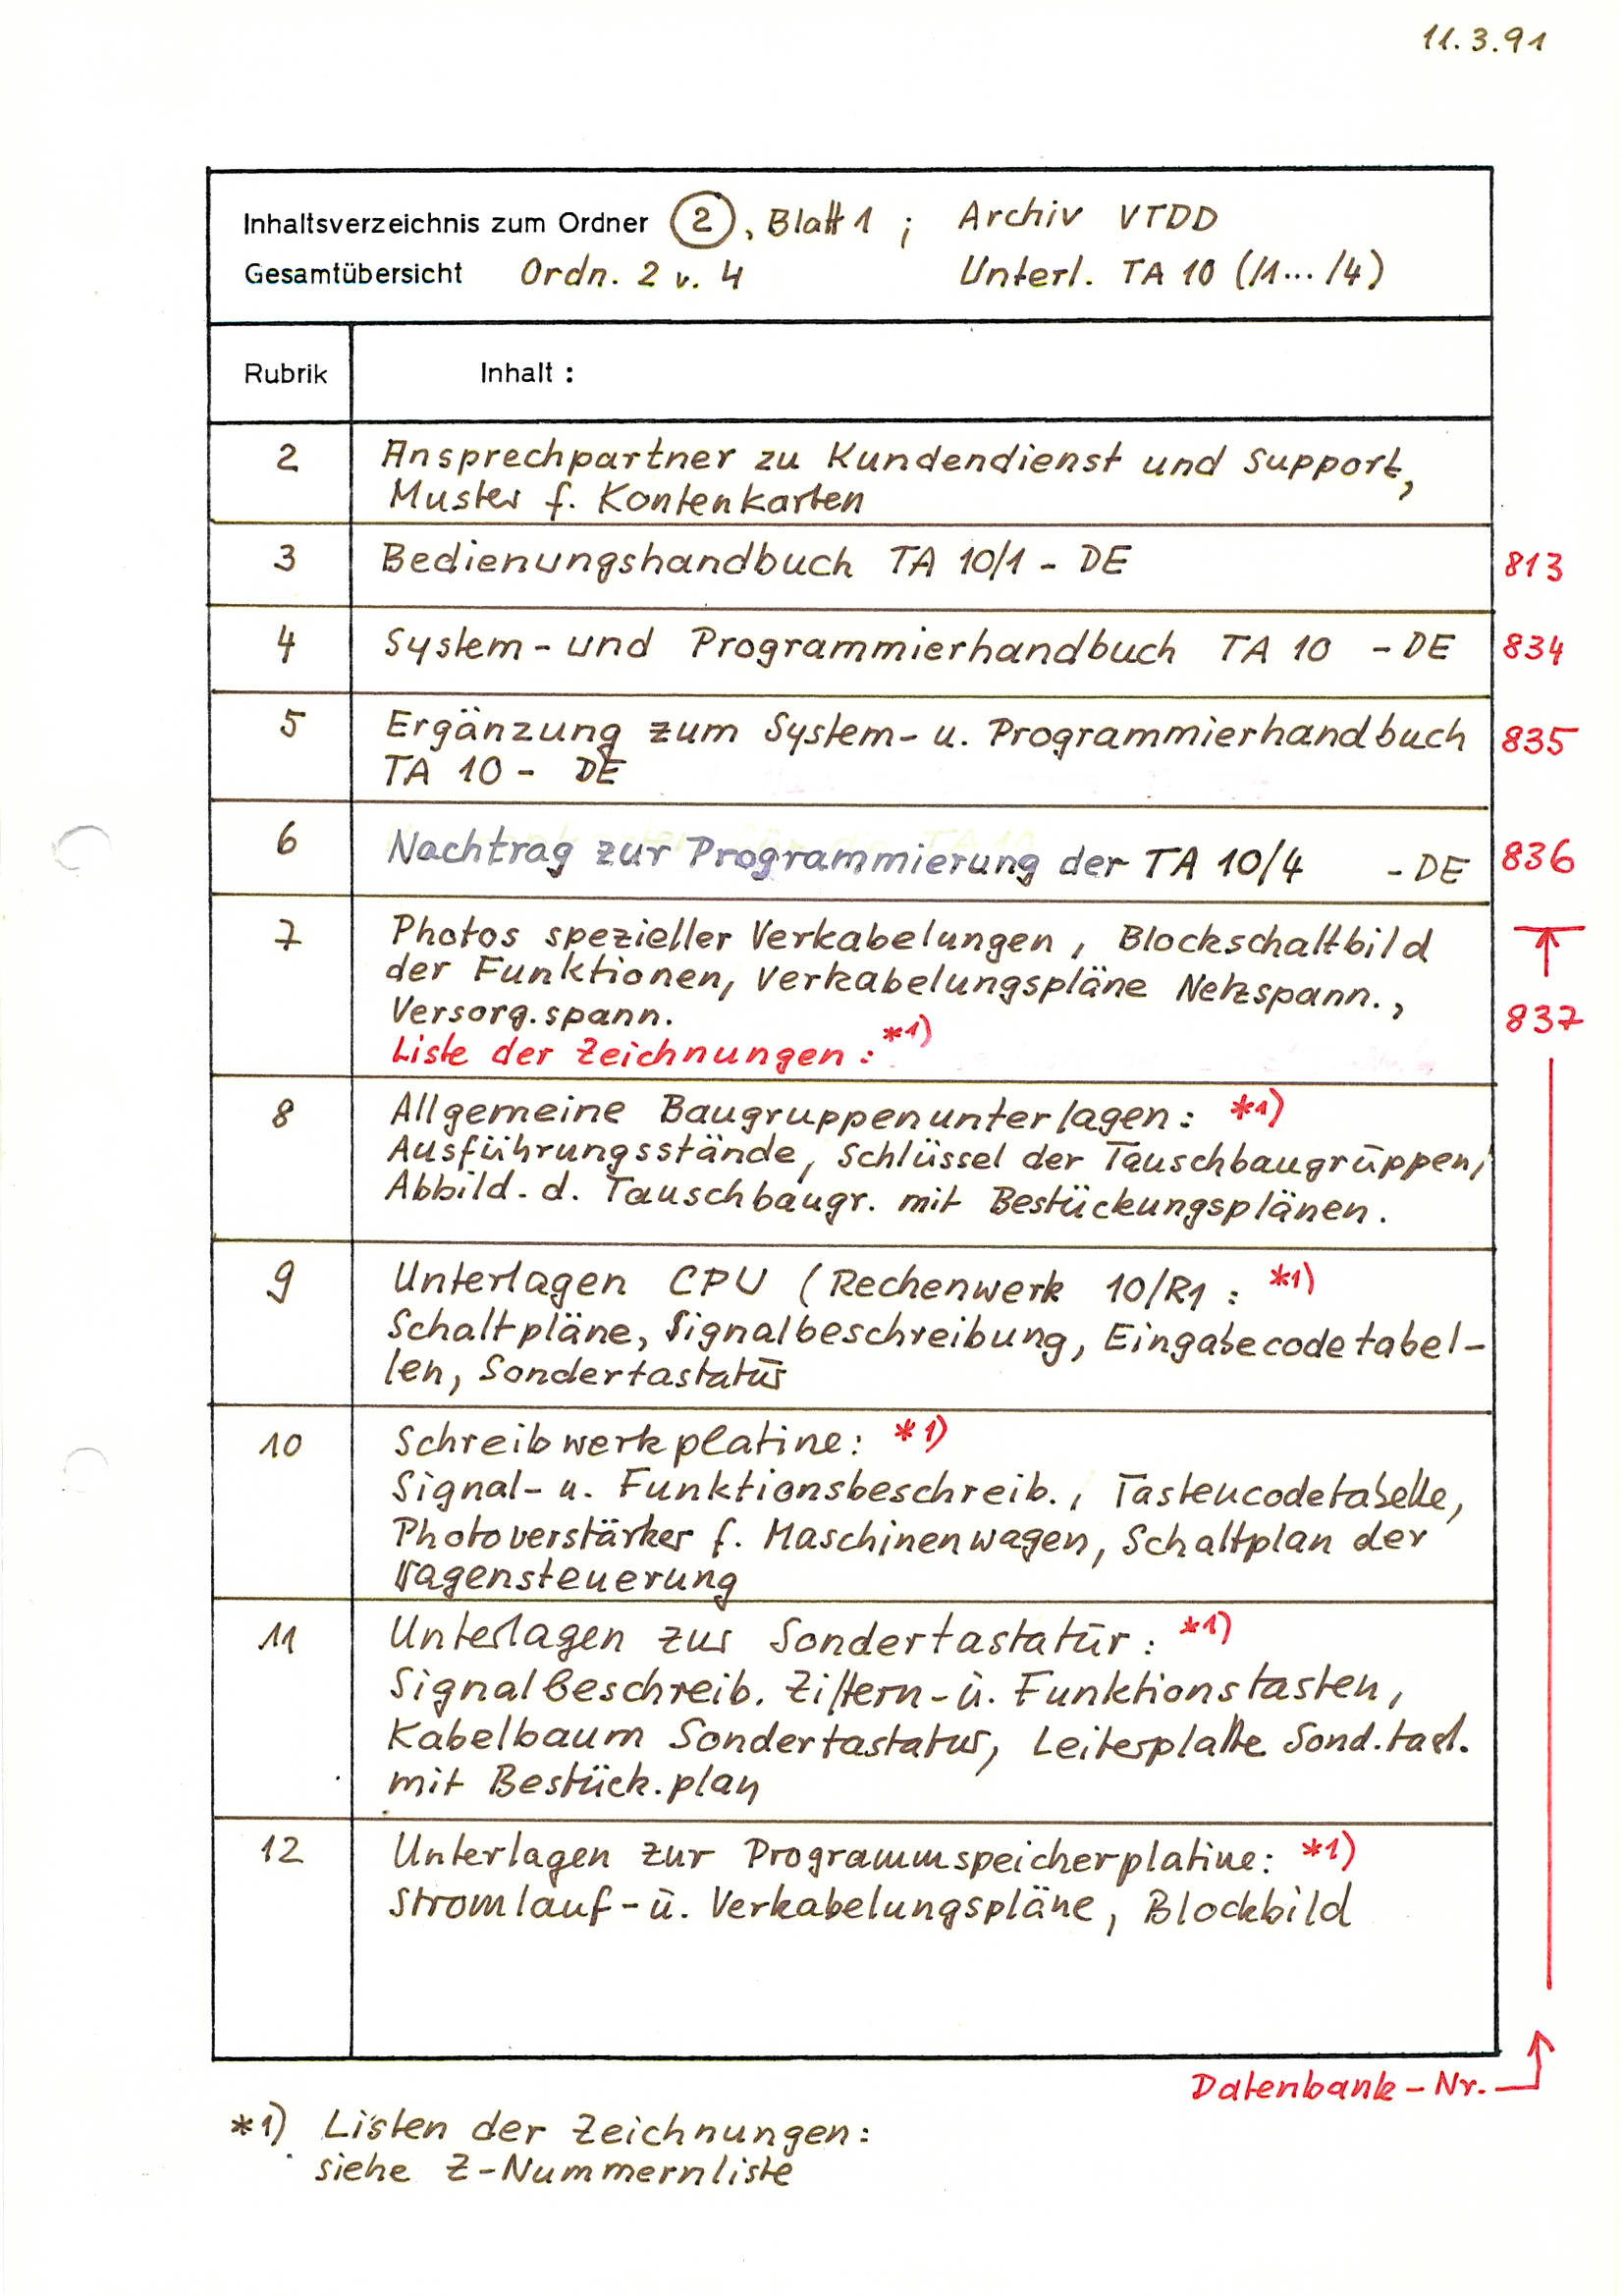 11.3.91
Inhaltsverzeichnis zum Ordner 2, Blatt 1 ; Archiv VTDD
Gesamtübersicht Ordn. 2 v. 4 Unterl. TA 10 (/1... /4)
Rubrik Inhalt :
2 Ansprechpartner zu Kundendienst und Support,
Muster f. Kontenkarten
3 Bedienungshandbuch TA 10/1 - DE 813
4 System- und Programmierhandbuch TA 10 - DE 834
5 Ergänzung zum System- u. Programmierhandbuch 835
TA 10 - DE
6 Nachtrag zur Programmierung der TA 10/4 - DE 836
7 Photos spezieller Verkabelungen, Blockschaltbild
der Funktionen, Verkabelungspläne Netzspann.,
Versorg.spann. 837
Liste der Zeichnungen: *1)
8 Allgemeine Baugruppenunterlagen: *1)
Ausführungsstände, Schlüssel der Tauschbaugruppen,
Abbild. d. Tauschbaugr. mit Bestückungsplänen.
9 Unterlagen CPU (Rechenwerk 10/R1 : *1)
Schaltpläne, Signalbeschreibung, Eingabecodetabel-
len, Sondertastatur
10 Schreibwerkplatine: *1)
Signal- u. Funktionsbeschreib., Tastencodetabelle,
Photoverstärker f. Maschinenwagen, Schaltplan der
Wagensteuerung
11 Unterlagen zur Sondertastatur: *1)
Signalbeschreib. Ziffern- u. Funktionstasten,
Kabelbaum Sondertastatur, Leiterplatte Sond.tast.
mit Bestück.plan
12 Unterlagen zur Programmspeicherplatine: *1)
Stromlauf- u. Verkabelungspläne, Blockbild
Datenbank-Nr.
*1) Listen der Zeichnungen:
siehe Z-Nummernliste